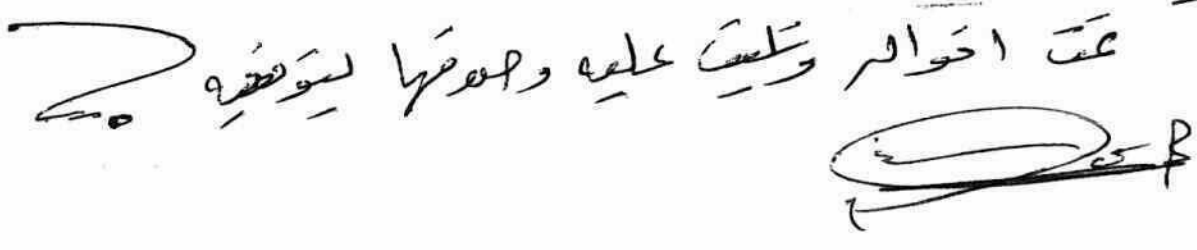 تمت اقواله وتليت عليه وصدقها بتوقيعه